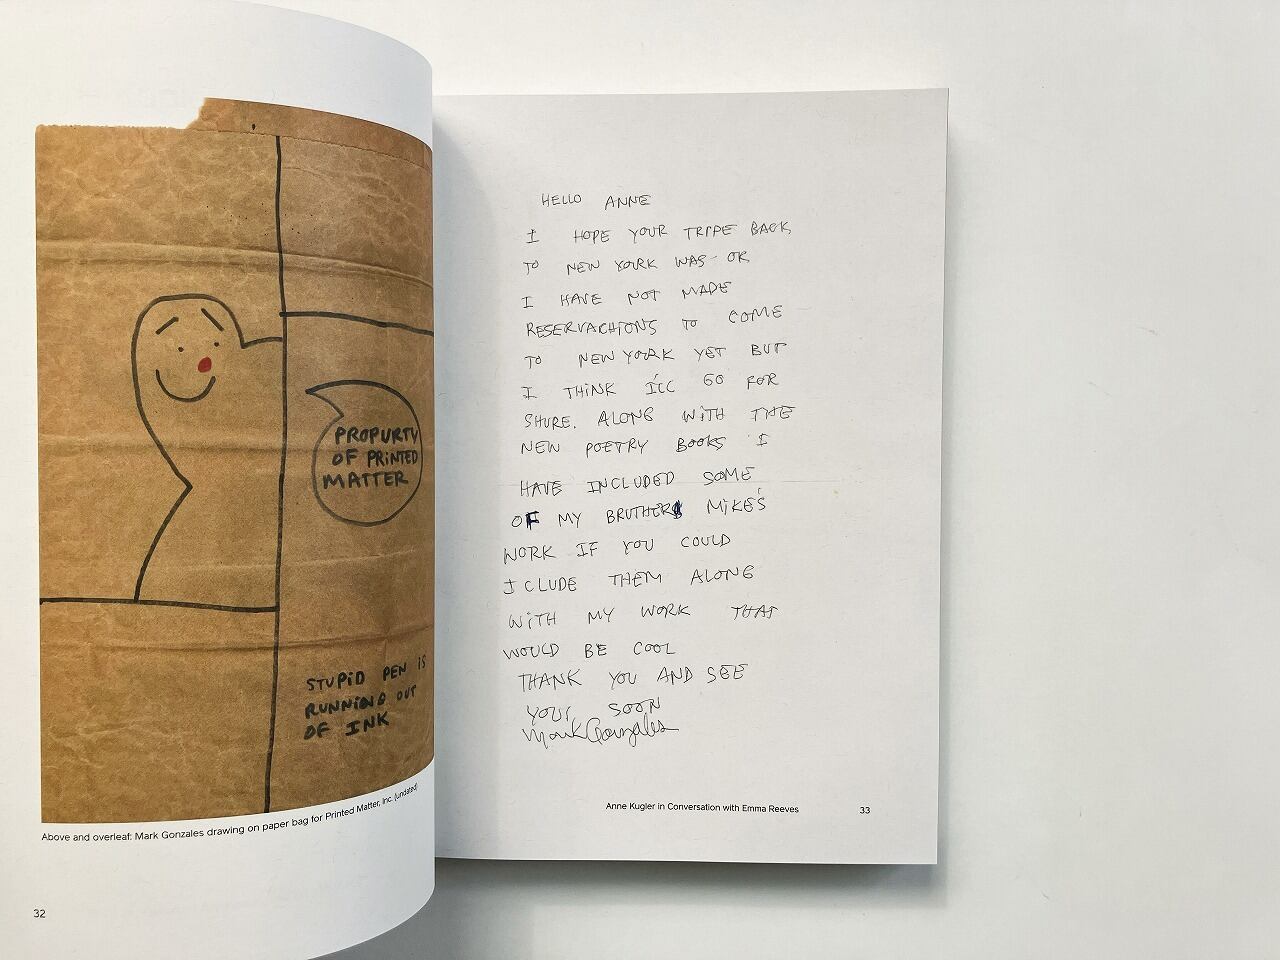 PROPURTY
OF PRINTED
MATTER
STUPID PEN IS
RUNNING OUT
OF INK
Above and overleaf: Mark Gonzales drawing on paper bag for Printed Matter, Inc. (undated)
32
HELLO ANNE
I HOPE YOUR TRIPE BACK
TO NEW YOURK WAS OK
I HAVE NOT MADE
RESERVACHIONS TO COME
TO NEW YOURK YET BUT
I THINK I'LL GO FOR
SHURE. ALONG WITH THE
NEW POETRY BOOKS I
HAVE INCLUDED SOME
OF MY BRUTHER MIKE'S
WORK IF YOU COULD
ICLUDE THEM ALONG
WITH MY WORK THAT
WOULD BE COOL
THANK YOU AND SEE
YOU SOON
Mark Gonzales
Anne Kugler in Conversation with Emma Reeves
33